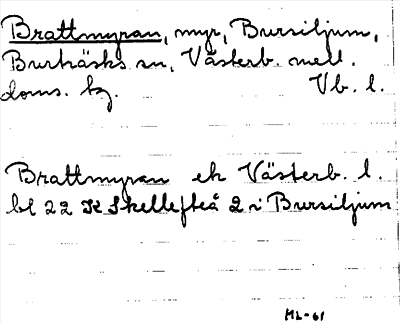 Brattmyran, myr, Bursiljum,
Burträsks sn, Västerb. mell.
doms. hg. Vb. l.
Brattmyran ek Västerb. l.
bl 22 K Skellefteå 2 i Bursiljum
ML-61